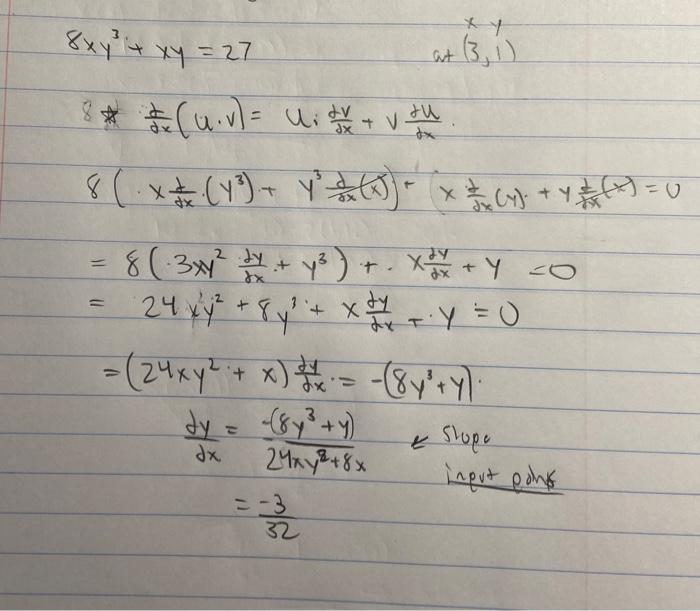 x y
8xy³ + xy = 27 at (3,1)
8 * d/dx (u·v) = u · dv/dx + v du/dx.
8 ( · x d/dx · (y³) + y³ d/dx (x) ) + ( x d/dx (y) · + y d/dx (x) = 0
= 8 ( · 3xy² dy/dx + y³ ) + · x dy/dx + y = 0
= 24xy² + 8y³ + x dy/dx + · y = 0
= (24xy² + x) dy/dx · = -(8y³ + y) ·
dy/dx = -(8y³ + y) / 24xy² + 8x ← slope
input points
= -3/32